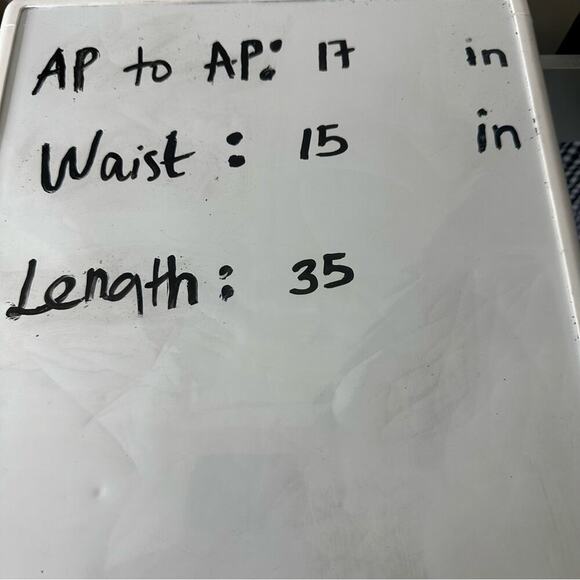 AP to AP: 17 in
Waist : 15 in
Length : 35